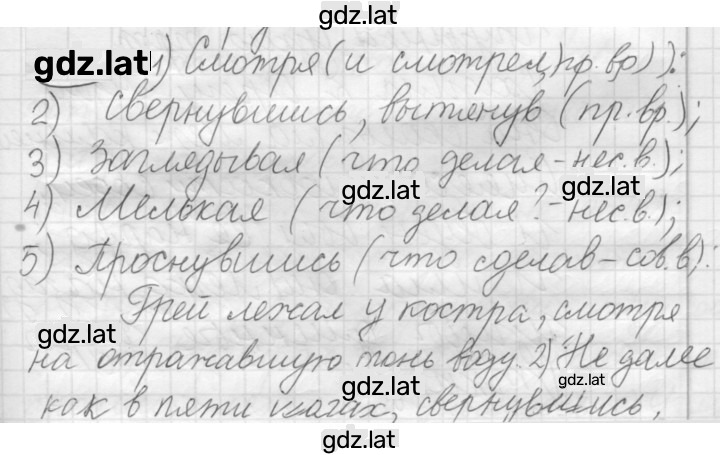 gdz.lat
gdz.lat 1) Смотря (и смотрел, пр. вр.):
2) Свернувшись, вытянув (пр. вр.);
3) Заглядывая (что делая - нес. в.);
gdz.lat gdz.lat
4) Мелькая (что делая? - нес. в.);
5) Проснувшись (что сделав - сов. в.):
Грей лежал у костра, смотря
gdz.lat
на отражавшую тонь воду. 2) Не далее
gdz.lat gdz.lat
как в пяти шагах, свернувшись,
gdz.lat